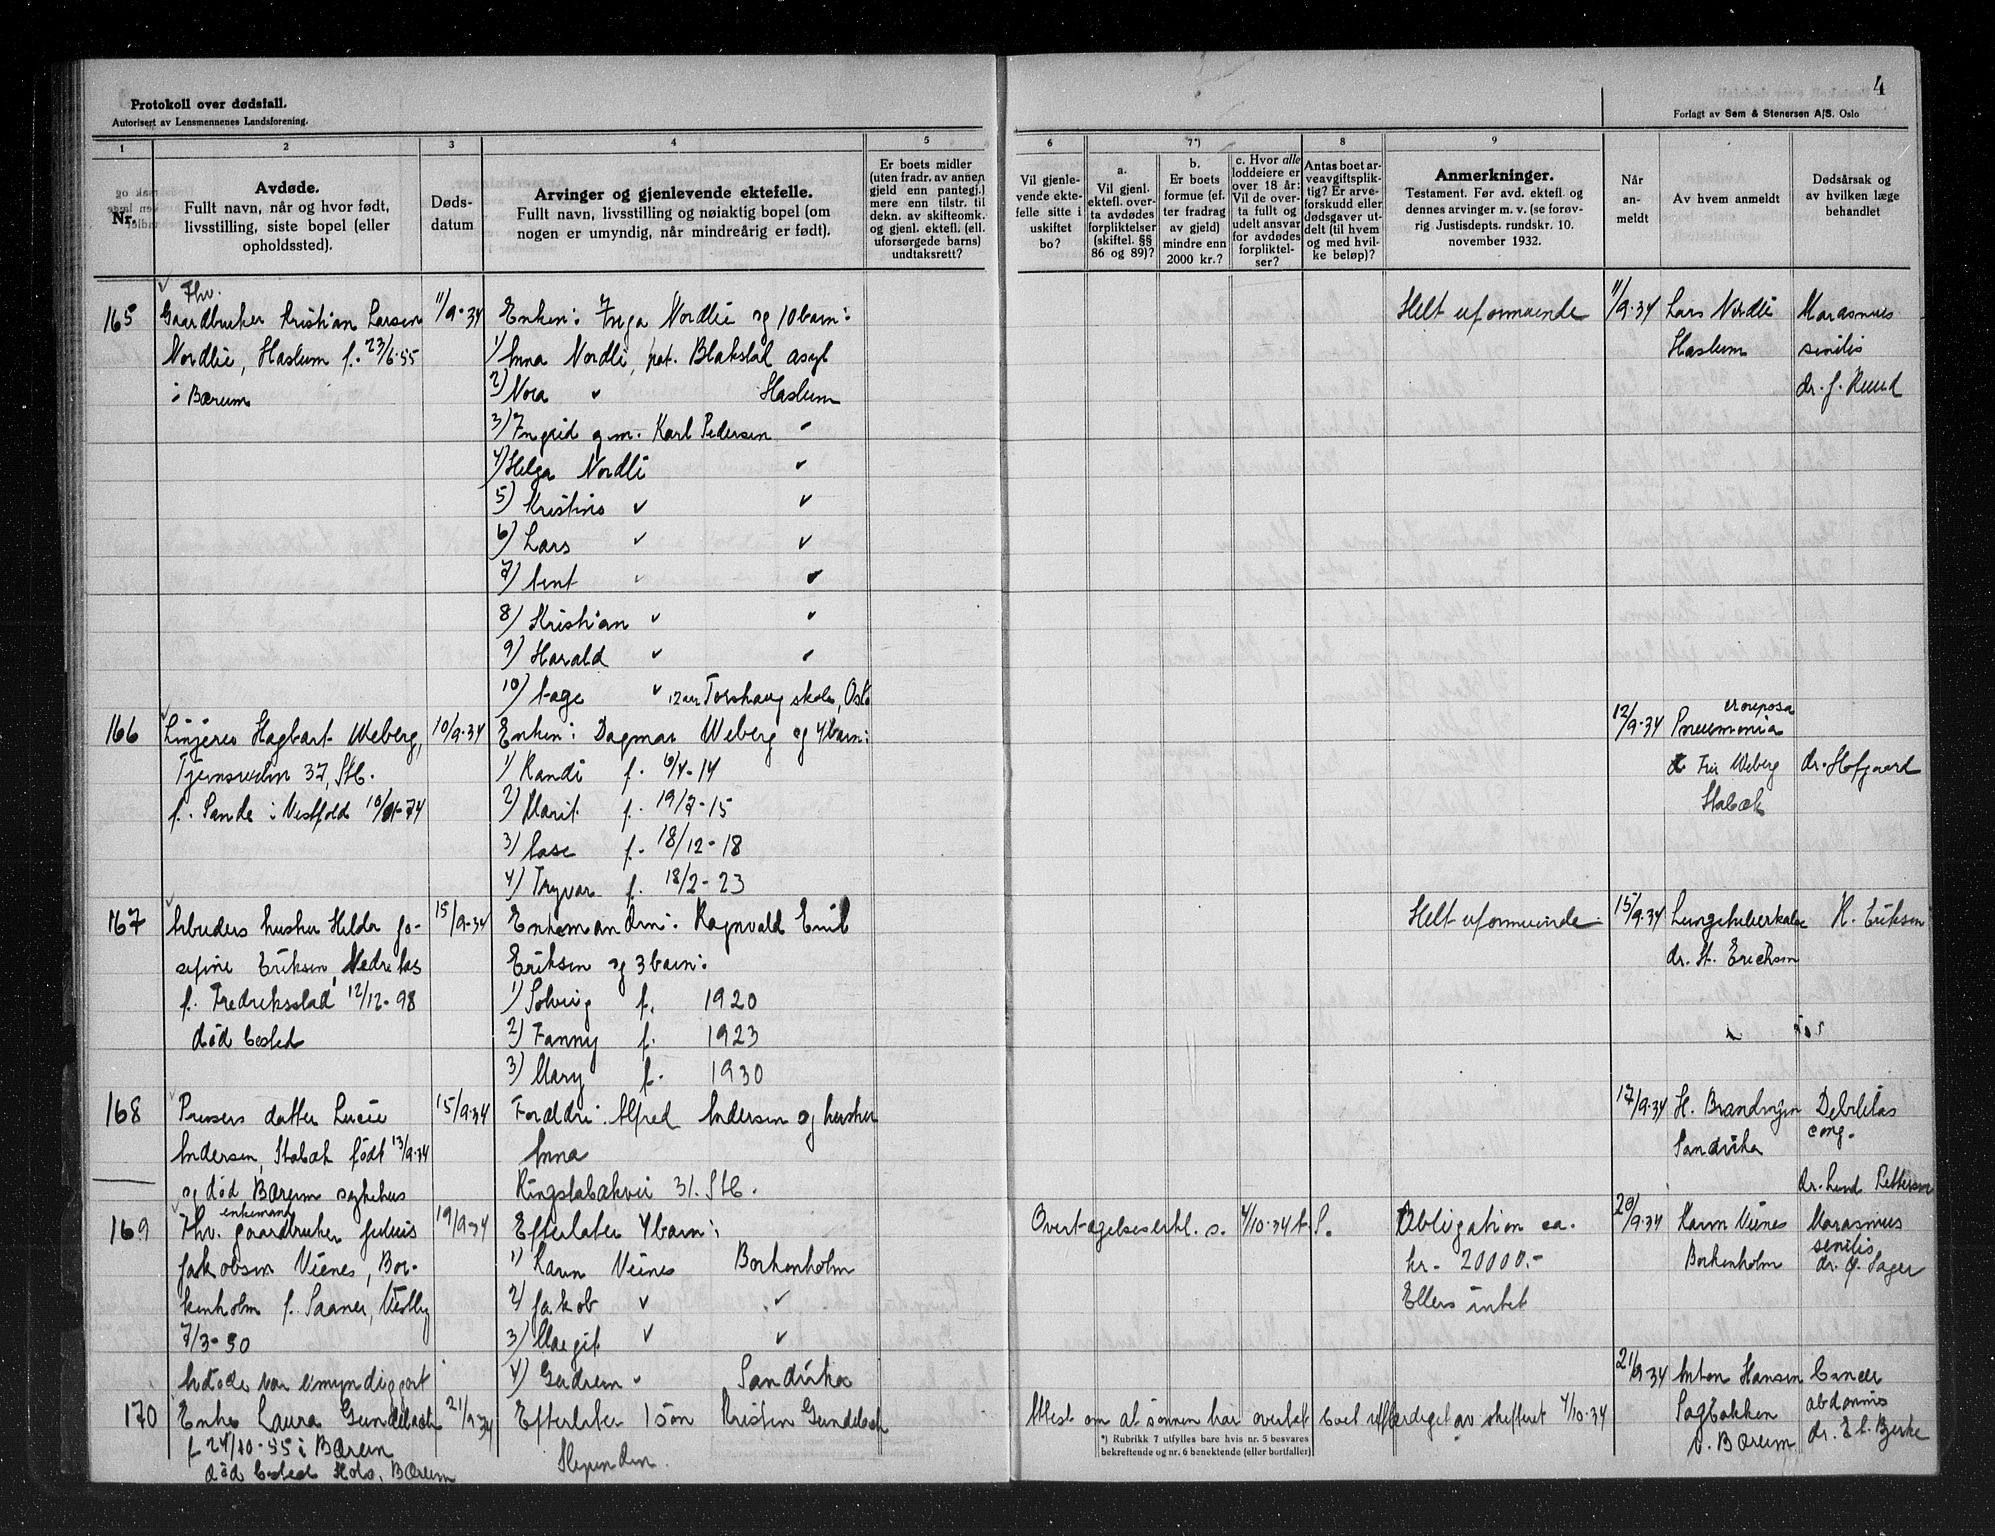 Protokoll over dødsfall.
Autorisert av Lensmennenes Landsforening.
4
Forlagt av Sem & Stenersen A/S. Oslo
1
2
3
4
5
6
7*)
8
9
Nr.
Avdøde.
Fullt navn, når og hvor født,
livsstilling, siste bopel (eller
opholdssted).
Døds-
datum
Arvinger og gjenlevende ektefelle.
Fullt navn, livsstilling og nøiaktig bopel (om
nogen er umyndig, når mindreårig er født).
Er boets midler
(uten fradr. av annen
gjeld enn pantegj.)
mere enn tilstr. til
dekn. av skifteomk.
og gjenl. ektef. (ell.
uforsørgede barns)
undtaksrett?
Vil gjenle-
vende ekte-
felle sitte i
uskiftet
bo?
a.
Vil gjenl.
ektefl. over-
ta avdødes
forpliktelser
(skiftel. §§
86 og 89)?
b.
Er boets
formue (ef-
ter fradrag
av gjeld)
mindre enn
2000 kr.?
c. Hvor alle
loddeiere er
over 18 år:
Vil de over-
ta fullt og
udelt ansvar
for avdødes
forpliktel-
ser?
Antas boet ar-
veavgiftsplik-
tig? Er arve-
forskudd eller
dødsgaver ut-
delt (til hvem
og med hvil-
ke beløp)?
Anmerkninger.
Testament. Før avd. ektefl. og
dennes arvinger m. v. (se forøv-
rig Justisdepts. rundskr. 10.
november 1932.
Når
an-
meldt
Av hvem anmeldt
Dødsårsak og
av hvilken læge
behandlet
165
Fhv.
Gaardbruker Kristian Larsen
Nordlie, Haslum f. 23/6-55
i Bærum
11/9-34
Enken: Inga Nordlie og 10 barn:
1) Anna Nordli, pat. Blakstad asyl
2) Nora " Haslum
3) Ingrid g.m. Karl Pedersen "
4) Helga Nordli "
5) Kristine " "
6) Lars " "
7) Arnt " "
8) Kristian " "
9) Harald " "
10) Aage " 12 aar Torshaug skole, Oslo
Helt uformuende
11/9-34
Lars Nordli
Haslum
Marasmus
senilis
dr. J. Ruud
166
Hagbart Weberg,
37, Stb.
f. Sande i Vestfold
10/9-34
Enken: Dagmar Weberg og 4 barn:
1) Randi f. 6/4-14
2) Marit f. 19/7-15
3) Aase f. 18/12-18
4) Trygvar f. 18/2-23
12/9-34
crouposa
Pneumonia
Fru Weberg
Stabæk
dr. Hofgaard
167
Arbeiders hustru Hilda Jo-
sefine Eriksen, Nedre Aas
f. Fredriksstad 12/12-98
død bosted
15/9-34
Enkemanden: Ragnvald Emil
Eriksen og 3 barn:
1) Solveig f. 1920
2) Fanny f. 1923
3) Mary f. 1930
Helt uformuende
15/9-34
Lungetuberkulose
dr. St. Erichsen
R. Eriksen
168
datter Lucie
Andersen, Stabæk født 13/9-34
og død Bærum sykehus
15/9-34
Foreldre: Alfred Andersen og hustru
Anna
Ringstabækvei 31. Stb.
17/9-34
H. Brandvogn
Sandvika
Debilitas
cong.
dr. Lund Pettersen
169
enkemand
Fhv. gaardbruker Julius
Jakobsen Vienes, Bor-
kenholm f. Saaner, Vestby
7/3-50
Avdøde var umyndiggjort
19/9-34
Efterlater 4 barn:
1) Karen Vienes Borkenholm
2) Jakob " "
3) Margit " "
4) Gudrun " Sandvika
Overtagelseserkl. s. 4/10-34 t. S.
Obligation ca.
kr. 20000.-
Ellers intet
20/9-34
Karen Vienes
Borkenholm
Marasmus
senilis
dr. Sager
170
Enke Laura Gundebach
f. 24/10-55 i Bærum
død bosted Hols, Bærum
21/9-34
Efterlater 1 søn Kristen Gundebach
Slependen.
Attest om at sønnen har overtat boet utferdiget av skifteret 4/10-34
21/9-34
Anton Hansen
Sagbakken
V. Bærum
Cancer
abdominis
dr. E. C. Bjerke
*) Rubrikk 7 utfylles bare hvis nr. 5 besvares
bekreftende og nr. 6 benektende (eller bortfaller)